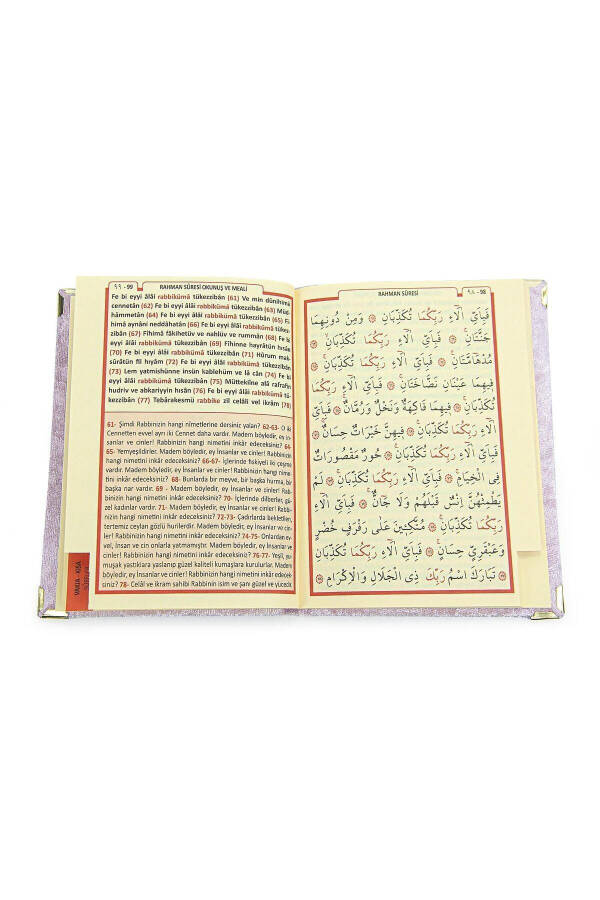 ٩٩ - 99
RAHMAN SÛRESİ OKUNUŞ VE MEALİ
Fe bi eyyi âlâi rabbikümâ tükezzibân (61) Ve min dûnihimâ
cennetân (62) Fe bi eyyi âlâi rabbikümâ tükezzibân (63) Müd-
hâmmetân (64) Fe bi eyyi âlâi rabbikümâ tükezzibân (65) Fî
himâ aynâni neddâhatân (66) Fe bi eyyi âlâi rabbikümâ tükez-
zibân (67) Fîhimâ fâkihetüv ve nahlüv ve rummân (68) Fe bi
eyyi âlâi rabbikümâ tükezzibân (69) Fîhinne hayrâtün hısân
(70) Fe bi eyyi âlâi rabbikümâ tükezzibân (71) Hûrum mak-
sûrâtün fil hıyâm (72) Fe bi eyyi âlâi rabbikümâ tükezzibân
(73) Lem yatmishünne insün kablehüm ve lâ cân (74) Fe bi
eyyi âlâi rabbikümâ tükezzibân (75) Müttekiîne alâ rafrafin
hudriv ve abkariyyin hısân (76) Fe bi eyyi âlâi rabbikümâ tü-
kezzibân (77) Tebârakesmü rabbike zil celâli vel ikrâm (78)
61- Şimdi Rabbinizin hangi nîmetlerine dersiniz yalan? 62-63- O iki
Cennetten evvel ayrı iki Cennet daha vardır. Madem böyledir, ey in-
sanlar ve cinler! Rabbinizin hangi nimetini inkâr edeceksiniz? 64-
65- Yemyeşildirler. Madem böyledir, ey İnsanlar ve cinler! Rabbinizin
hangi nimetini inkar edeceksiniz? 66-67- İçlerinde fıskiyeli iki çeşme
vardır. Madem böyledir, ey İnsanlar ve cinler! Rabbinizin hangi nime-
tini inkâr edeceksiniz? 68- Bunlarda bir meyve, bir başka hurma, bir
başka nar vardır. 69 - Madem böyledir, ey İnsanlar ve cinler! Rab-
binizin hangi nimetini inkâr edeceksiniz? 70- İçlerinde dilberler, gü-
zel kadınlar vardır. 71- Madem böyledir, ey İnsanlar ve cinler! Rab-
binizin hangi nimetini inkar edeceksiniz? 72-73- Çadırlarda bekletilen,
tertemiz ceylan gözlü hurilerdir. Madem böyledir, ey İnsanlar ve cin-
ler! Rabbinizin hangi nimetini inkâr edeceksiniz? 74-75- Onlardan ev-
vel, İnsan ve cin onlarla yatmamıştır. Madem böyledir, ey İnsanlar ve
cinler! Rabbinizin hangi nimetini inkâr edeceksiniz? 76-77- Yeşil, yu-
muşak yastıklara yaslanıp güzel kaliteli kumaşlara kurulurlar. Madem
böyledir, ey İnsanlar ve cinler! Rabbinizin hangi nimetini inkâr edecek-
siniz? 78- Celâl ve ikram sahibi Rabbinin isim ve şanı güzel ve yücedir.
RAHMAN SÛRESİ
٩٨ - 98
فَبِاَيِّ اٰلَٓاءِ رَبِّكُمَا تُكَذِّبَانِ ۝ وَمِنْ دُونِهِمَا
جَنَّتَانِۚ ۝ فَبِاَيِّ اٰلَٓاءِ رَبِّكُمَا تُكَذِّبَانِۙ ۝
مُدْهَٓامَّتَانِۚ ۝ فَبِاَيِّ اٰلَٓاءِ رَبِّكُمَا تُكَذِّبَانِۚ ۝
فِيهِمَا عَيْنَانِ نَضَّاخَتَانِۚ ۝ فَبِاَيِّ اٰلَٓاءِ رَبِّكُمَا
تُكَذِّبَانِۚ ۝ فِيهِمَا فَاكِهَةٌ وَنَخْلٌ وَرُمَّانٌۚ ۝ فَبِاَيِّ
اٰلَٓاءِ رَبِّكُمَا تُكَذِّبَانِۚ ۝ فِيهِنَّ خَيْرَاتٌ حِسَانٌۚ ۝
فَبِاَيِّ اٰلَٓاءِ رَبِّكُمَا تُكَذِّبَانِۚ ۝ حُورٌ مَقْصُورَاتٌ
فِي الْخِيَامِۚ ۝ فَبِاَيِّ اٰلَٓاءِ رَبِّكُمَا تُكَذِّبَانِۚ ۝ لَمْ
يَطْمِثْهُنَّ اِنْسٌ قَبْلَهُمْ وَلَا جَٓانٌّۚ ۝ فَبِاَيِّ اٰلَٓاءِ
رَبِّكُمَا تُكَذِّبَانِۚ ۝ مُتَّكِـِٔينَ عَلٰى رَفْرَفٍ خُضْرٍ
وَعَبْقَرِيٍّ حِسَانٍۚ ۝ فَبِاَيِّ اٰلَٓاءِ رَبِّكُمَا تُكَذِّبَانِ
۝ تَبَارَكَ اسْمُ رَبِّكَ ذِي الْجَلَالِ وَالْاِكْرَامِ ۝